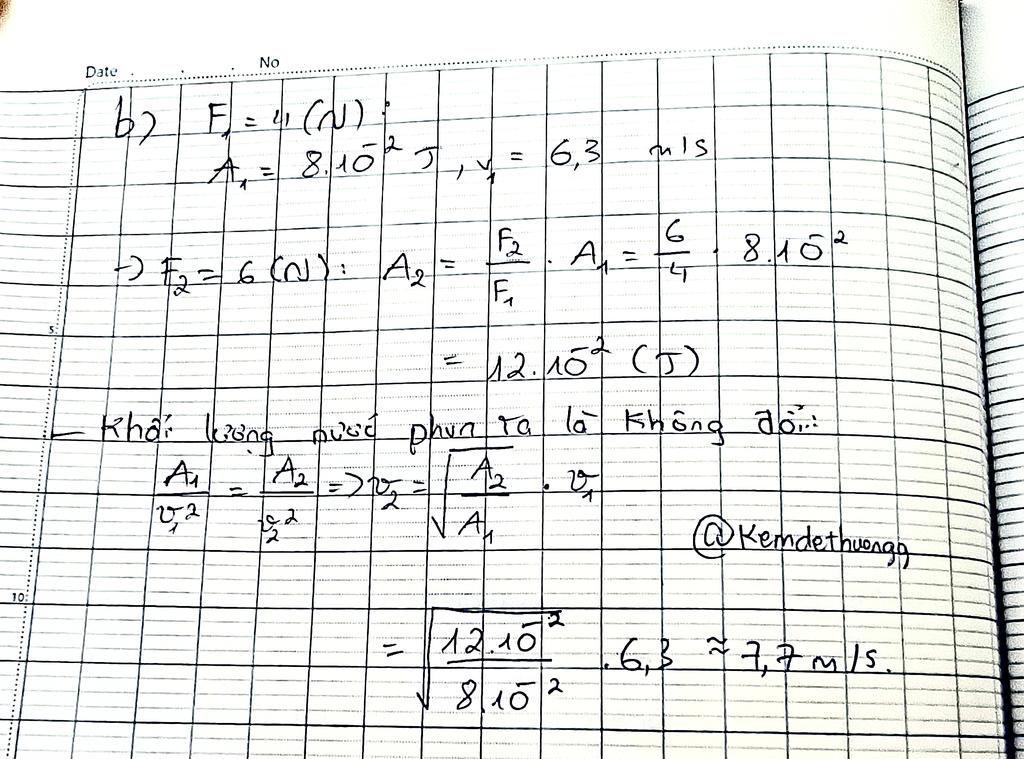 Date No
b) F₁ = 4 (N) :
A₁ = 8.10⁻² J , v₁ = 6,3 m/s
→ F₂ = 6 (N) : A₂ = F₂/F₁ . A₁ = 6/4 . 8.10⁻²
5
= 12.10⁻² (J)
– Khối lượng nước phun ra là không đổi:
A₁/v₁² = A₂/v₂² => v₂ = √(A₂/A₁) . v₁
@Kemdethuongg
10
= √(12.10⁻²/8.10⁻²) . 6,3 ≈ 7,7 m/s.